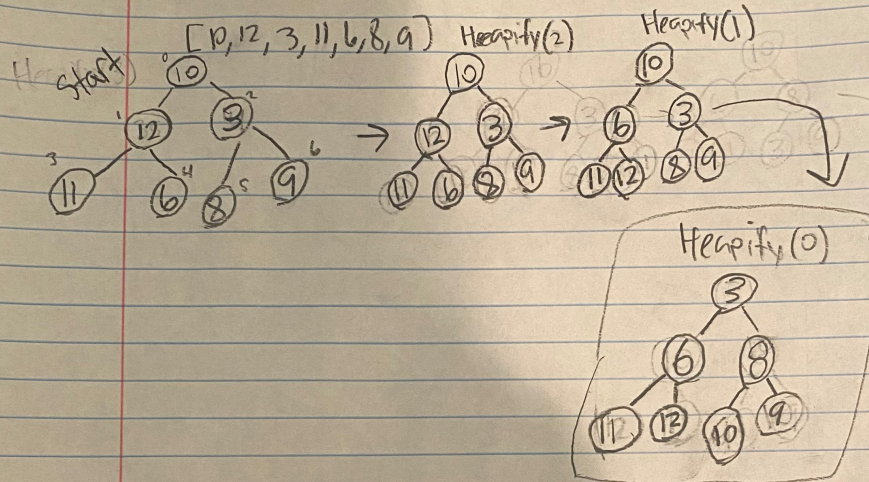 [10, 12, 3, 11, 6, 8, 9]
Start
0 10
1 12 3 2
3 11 6 4 8 5 9 6
Heapify(2)
10
12 3
11 6 8 9
Heapify(1)
10
6 3
11 12 8 9
Heapify(0)
3
6 8
11 12 10 9